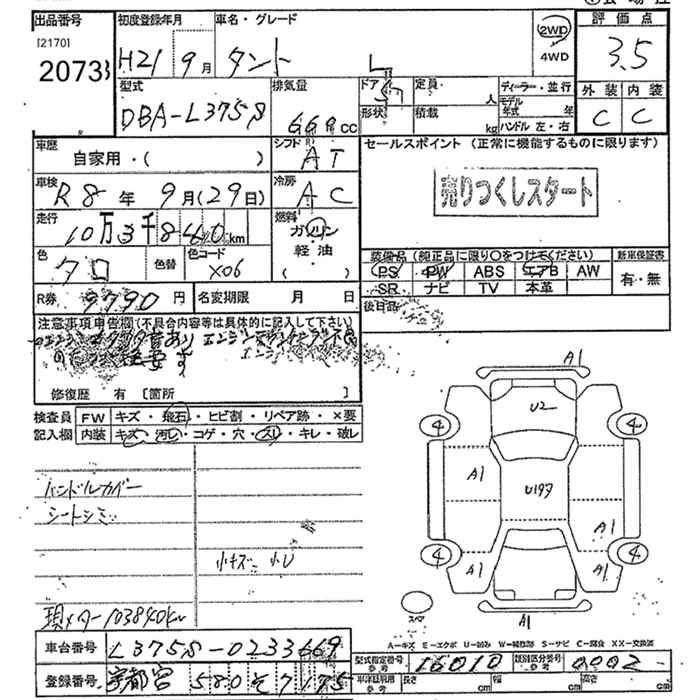 出品番号 初度登録年月 車名・グレード 2WD 評価点
[2170] H21 9月 タント L 4WD 3.5
2073
型式 排気量 ドア 定員 人 ディーラー・並行 外装 内装
DBA-L375S 660cc 形状 積載 kg モデル年式 年 C C
ハンドル 左・右
車歴 シフト セールスポイント (正常に機能するものに限ります)
自家用・( ) AT
車検 冷房 売りつくしスタート
R8年 9月(29日) AC
走行 燃料
10万3千840km ガソリン
軽油
色 色替 色コード ( ) 装備品 (純正品に限り○をつけてください) 新車保証書
クロ X06 PS PW ABS エアB AW 有・無
R券 9790円 名変期限 月 日 SR ナビ TV 本革
後日品
注意事項申告欄(不具合内容等は具体的に記入して下さい)
修復歴 有 [箇所 ]
検査員 FW キズ・飛石・ヒビ割・リペア跡・×要
記入欄 内装 キズ・汚レ・コゲ・穴・スレ・キレ・破レ
ハンドルカバー
シートシミ
小キズ 小U
現メーター103840km
A1
U2
4 4
A1 U197 A1
4 4
A1 A1
スペア
A1
A-キズ E-エクボ U-凹み W-補修跡 S-サビ C-腐食 XX-交換済
車台番号 L375S-0233669 型式指定番号 参考 16010 類別区分番号 参考 0002
登録番号 宇都宮 580 そ 7175 長さ cm 幅 cm 高さ cm